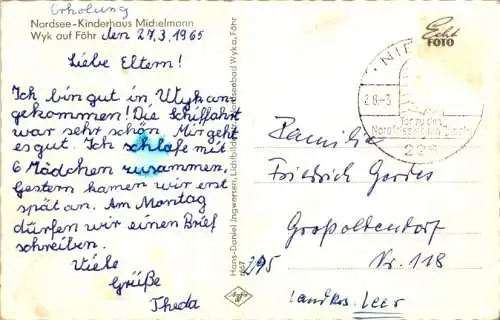 Erholung
Nordsee-Kinderhaus Michelmann
Wyk auf Föhr, den 27.3.1965
Liebe Eltern!
Ich bin gut in Wyk an-
gekommen! Die Schiffahrt
war sehr schön. Mir geht
es gut. Ich schlafe mit
6 Mädchen zusammen,
Gestern kamen wir erst
spät an. Am Montag
dürfen wir einen Brief
schreiben.
Viele
Grüße
Theda
Hans-Daniel Ingwersen, Lichtbild Nordseebad Wyk a. Föhr
Echt
FOTO
Tor zu den
Familie
Friedrich Gerdes
Großoldendorf
295
Nr. 118
Landkrs. Leer